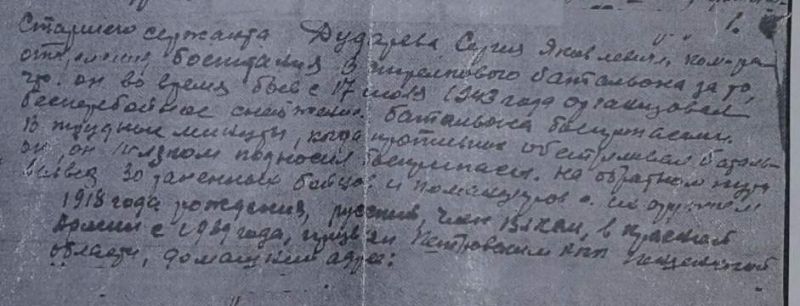 Старшего сержанта Дударева Сергея Яковлевича, коман-ра
отделения боепитания 3 стрелкового батальона за то,
что он во время боев с 17 июля 1943 года организовал
бесперебойное снабжение батальона боеприпасами.
В трудные минуты, когда противник обстреливал баталь-
он, он ползком подносил боеприпасы. На обратном пути
вывез 30 раненных бойцов и командиров с их оружием
1918 года рождения, русский, член ВЛКСМ, в Красной
Армии с 1939 года, призван
области, домашний адрес: